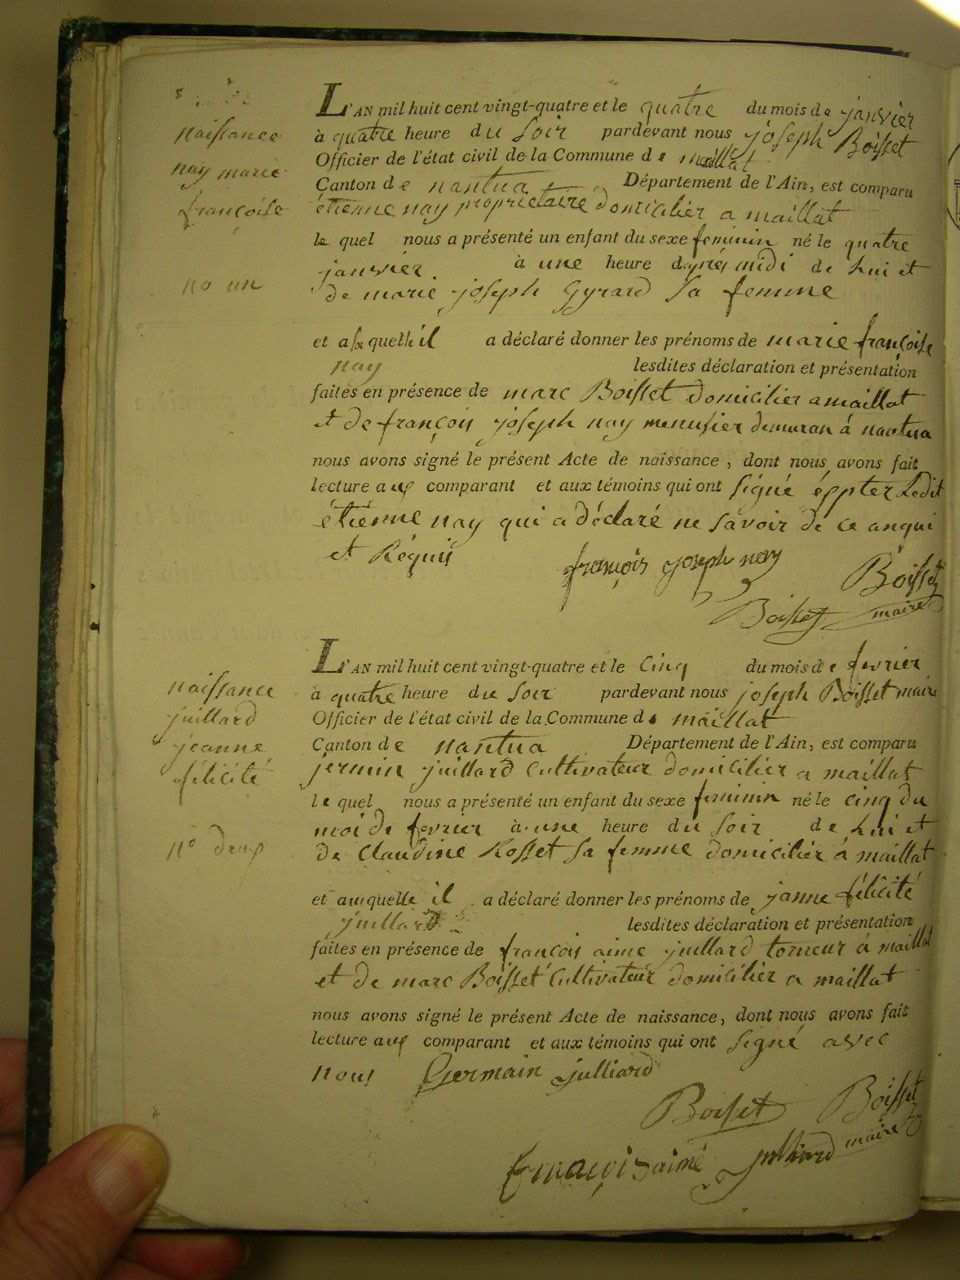 naissance
nay marie
françoise
no un
L'AN mil huit cent vingt-quatre et le quatre du mois de janvier
à quatre heure du soir pardevant nous joseph Boisset
Officier de l'état civil de la Commune de maillat
Canton de nantua Département de l'Ain, est comparu
étienne nay proprietaire domicilier a maillat
le quel nous a présenté un enfant du sexe feminin né le quatre
janvier. à une heure daprés midi de Lui et
de marie joseph Gyrard sa femme
et auquelle il a déclaré donner les prénoms de marie françoise
nay lesdites déclaration et présentation
faites en présence de marc Boisset domicilier a maillat
et de françois joseph nay menusier demuran à nantua
nous avons signé le présent Acte de naissance, dont nous avons fait
lecture aux comparant et aux témoins qui ont signé éppter Ledit
étiénne nay qui a déclaré ne savoir de ce anqui
et Réquis
françois joseph nay Boisset
Boisset maire
naissance
juillard
jeanne
félicité
No deux
L'AN mil huit cent vingt-quatre et le cinq du mois de fevrier
à quatre heure du soir pardevant nous joseph Boisset maire
Officier de l'état civil de la Commune de maillat
Canton de nantua Département de l'Ain, est comparu
jermin juillard Cultivateur domicilier a maillat
le quel nous a présenté un enfant du sexe feminin né le cinq du
moi de fevrier à une heure du soir de Lui et
de Claudine Rosset sa femme domicilier à maillat
et auquelle il a déclaré donner les prénoms de janne félicité
juillard lesdites déclaration et présentation
faites en présence de françois aimé juillard torneur à maillat
et de marc Boisset Cultivateur domicilier a maillat
nous avons signé le présent Acte de naissance, dont nous avons fait
lecture aux comparant et aux témoins qui ont signé avec
nous Germain julliard
Boisset Boisset
françois aimé julliard maire